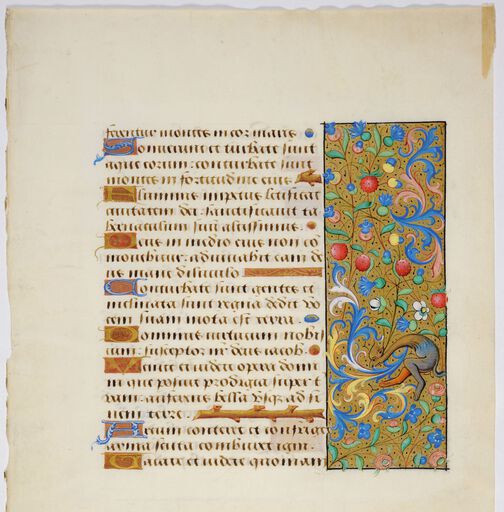 ferentur montes in cor maris
Sonuerunt et turbate sunt
aque eorum: conturbati sunt
montes in fortitudine eius
Fluminis impetus letificat
civitatem dei: sanctificavit ta
bernaculum suum altissimus.
Deus in medio eius non co
movebitur: adiuvabit eam de
us mane diluculo
Conturbate sunt gentes et
inclinata sunt regna: dedit vo
cem suam mota est terra.
Dominus virtutum nobis
cum: susceptor noster deus iacob.
Venite et videte opera domi
ni que posuit prodigia super t
ram: auferens bella usque ad fi
nem terre.
Arcum conteret et confringet
arma: scuta comburet igni
Vacate et videte quoniam